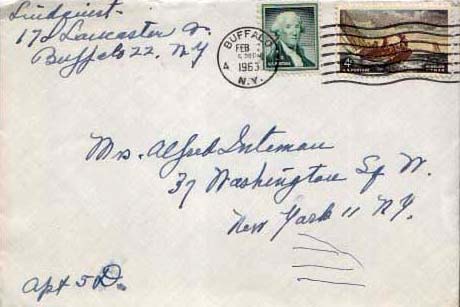 Lindquist
172 Lancaster Av.
Buffalo 22, NY
BUFFALO
FEB
4 PM
1963
N.Y.
4¢
Mrs. Alfred Inteman
37 Washington Sq W.
New York 11 NY.
Apt 5D.